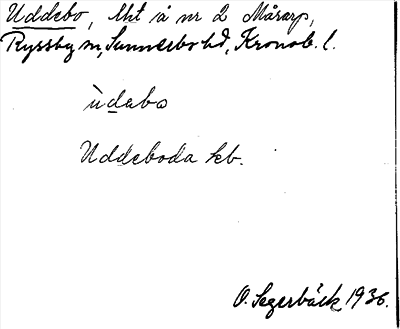 Uddebo, lht å nr 2 Mårarp,
Ryssby sn, Sunnerbo hd, Kronob. l.
ùdabo
Uddeboda kb.
O. Segerbäck 1936.